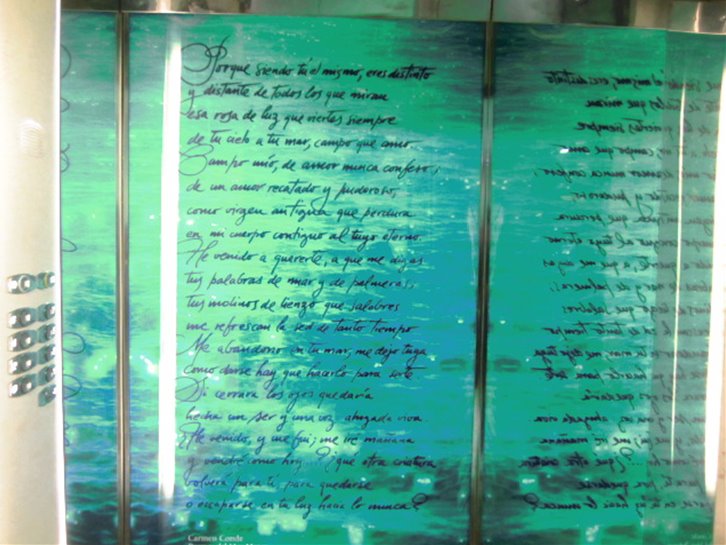 Porque siendo tú el mismo, eres distinto
y distante de todos los que miran
esa rosa de luz que viertes siempre
de tu cielo a tu mar, campo que amo.
Campo mío, de amor nunca confeso;
de un amor recatado y pudoroso,
como virgen antigua que perdura
en mi cuerpo contiguo al tuyo eterno.
He venido a quererte, a que me digas
tus palabras de mar y de palmeras;
tus molinos de lienzo que salobres
me refrescan la sed de tanto tiempo
Me abandono en tu mar, me dejo tuya
como darse hay que hacerlo para serte
Si cerrara los ojos quedaría
hecha un ser y una voz ahogada viva.
¿He venido, y me fui; me iré mañana
y vendré como hoy...? ¿qué otra criatura
volverá para ti, para quedarse
o escaparse en tu luz hacia lo nunca?
Carmen Conde